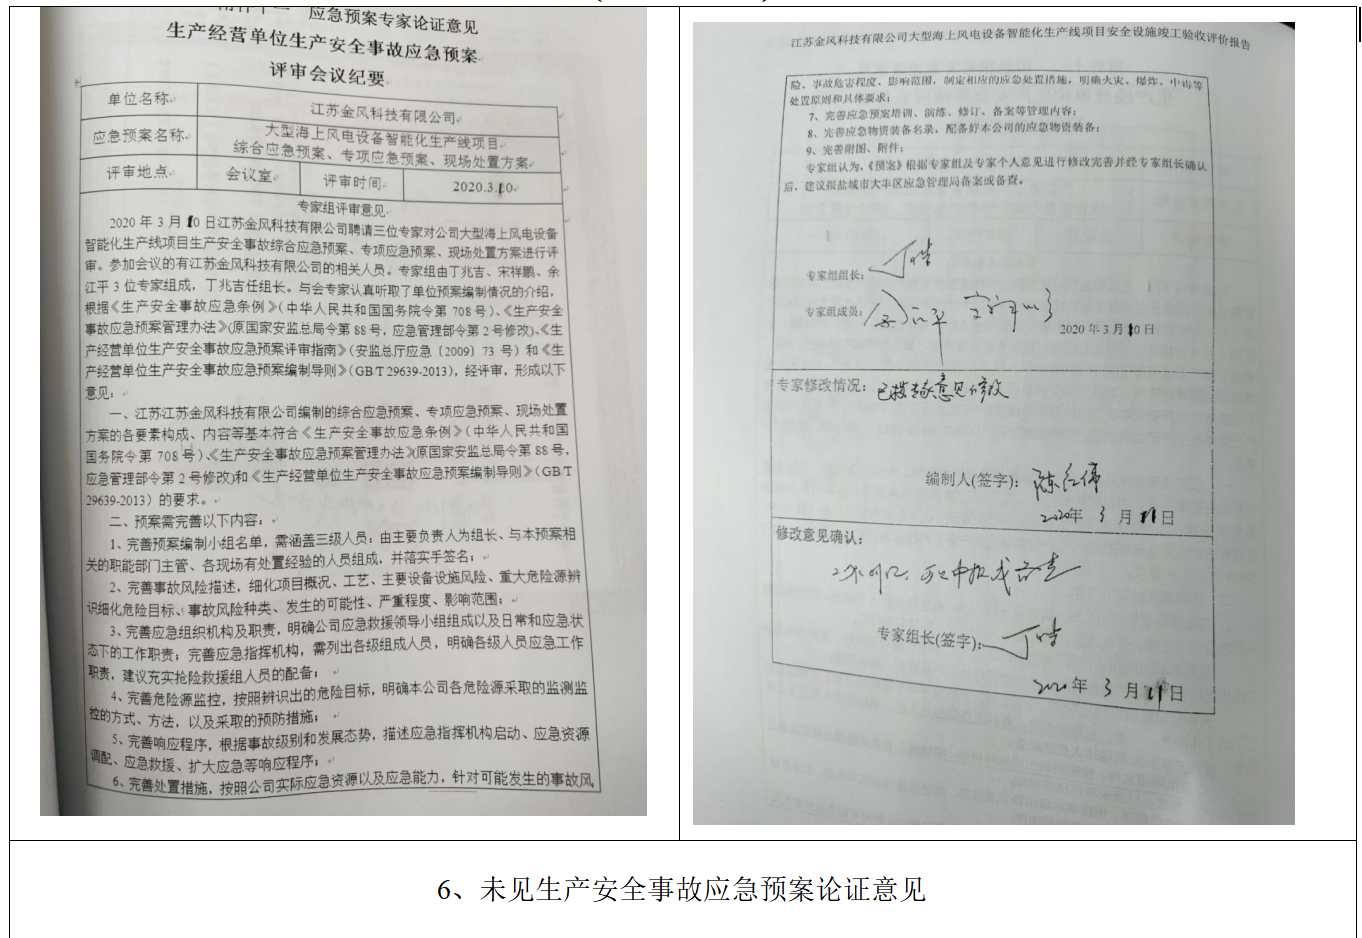 附件十二 应急预案专家论证意见
生产经营单位生产安全事故应急预案
评审会议纪要
单位名称 江苏金风科技有限公司
应急预案名称 大型海上风电设备智能化生产线项目
综合应急预案、专项应急预案、现场处置方案
评审地点 会议室 评审时间 2020.3.10
专家组评审意见
2020 年 3 月 10 日江苏金风科技有限公司聘请三位专家对公司大型海上风电设备
智能化生产线项目生产安全事故综合应急预案、专项应急预案、现场处置方案进行评
审。参加会议的有江苏金风科技有限公司的相关人员。专家组由丁兆吉、宋祥鹏、余
江平 3 位专家组成，丁兆吉任组长。与会专家认真听取了单位预案编制情况的介绍，
根据《生产安全事故应急条例》（中华人民共和国国务院令第 708 号）、《生产安全
事故应急预案管理办法》(原国家安监总局令第 88 号，应急管理部令第 2 号修改)、《生
产经营单位生产安全事故应急预案评审指南》（安监总厅应急〔2009〕73 号）和《生
产经营单位生产安全事故应急预案编制导则》（GB/T 29639-2013），经评审，形成以下
意见：
一、江苏江苏金风科技有限公司编制的综合应急预案、专项应急预案、现场处置
方案的各要素构成、内容等基本符合《生产安全事故应急条例》（中华人民共和国
国务院令第 708 号）、《生产安全事故应急预案管理办法》(原国家安监总局令第 88 号，
应急管理部令第 2 号修改)和《生产经营单位生产安全事故应急预案编制导则》（GB/T
29639-2013）的要求。
二、预案需完善以下内容：
1、完善预案编制小组名单，需涵盖三级人员：由主要负责人为组长、与本预案相
关的职能部门主管、各现场有处置经验的人员组成，并落实手签名；
2、完善事故风险描述，细化项目概况、工艺、主要设备设施风险、重大危险源辨
识细化危险目标、事故风险种类、发生的可能性、严重程度、影响范围；
3、完善应急组织机构及职责，明确公司应急救援领导小组组成以及日常和应急状
态下的工作职责；完善应急指挥机构，需列出各级组成人员，明确各级人员应急工作
职责，建议充实抢险救援组人员的配备；
4、完善危险源监控，按照辨识出的危险目标，明确本公司各危险源采取的监测监
控的方式、方法，以及采取的预防措施；
5、完善响应程序，根据事故级别和发展态势，描述应急指挥机构启动、应急资源
调配、应急救援、扩大应急等响应程序；
6、完善处置措施，按照公司实际应急资源以及应急能力，针对可能发生的事故风
江苏金风科技有限公司大型海上风电设备智能化生产线项目安全设施竣工验收评价报告
险、事故危害程度、影响范围，制定相应的应急处置措施，明确火灾、爆炸、中毒等
处置原则和具体要求；
7、完善应急预案培训、演练、修订、备案等管理内容；
8、完善应急物资装备名录，配备好本公司的应急物资装备；
9、完善附图、附件；
专家组认为，《预案》根据专家组及专家个人意见进行修改完善并经专家组长确认
后，建议报盐城市大丰区应急管理局备案或备查。
专家组组长：
专家组成员：
2020 年 3 月 10 日
专家修改情况：已按专家意见修改
编制人(签字)：陈红伟
2020年 3 月 11 日
修改意见确认：
专家组长(签字)：
2020 年 3 月 11 日
6、未见生产安全事故应急预案论证意见